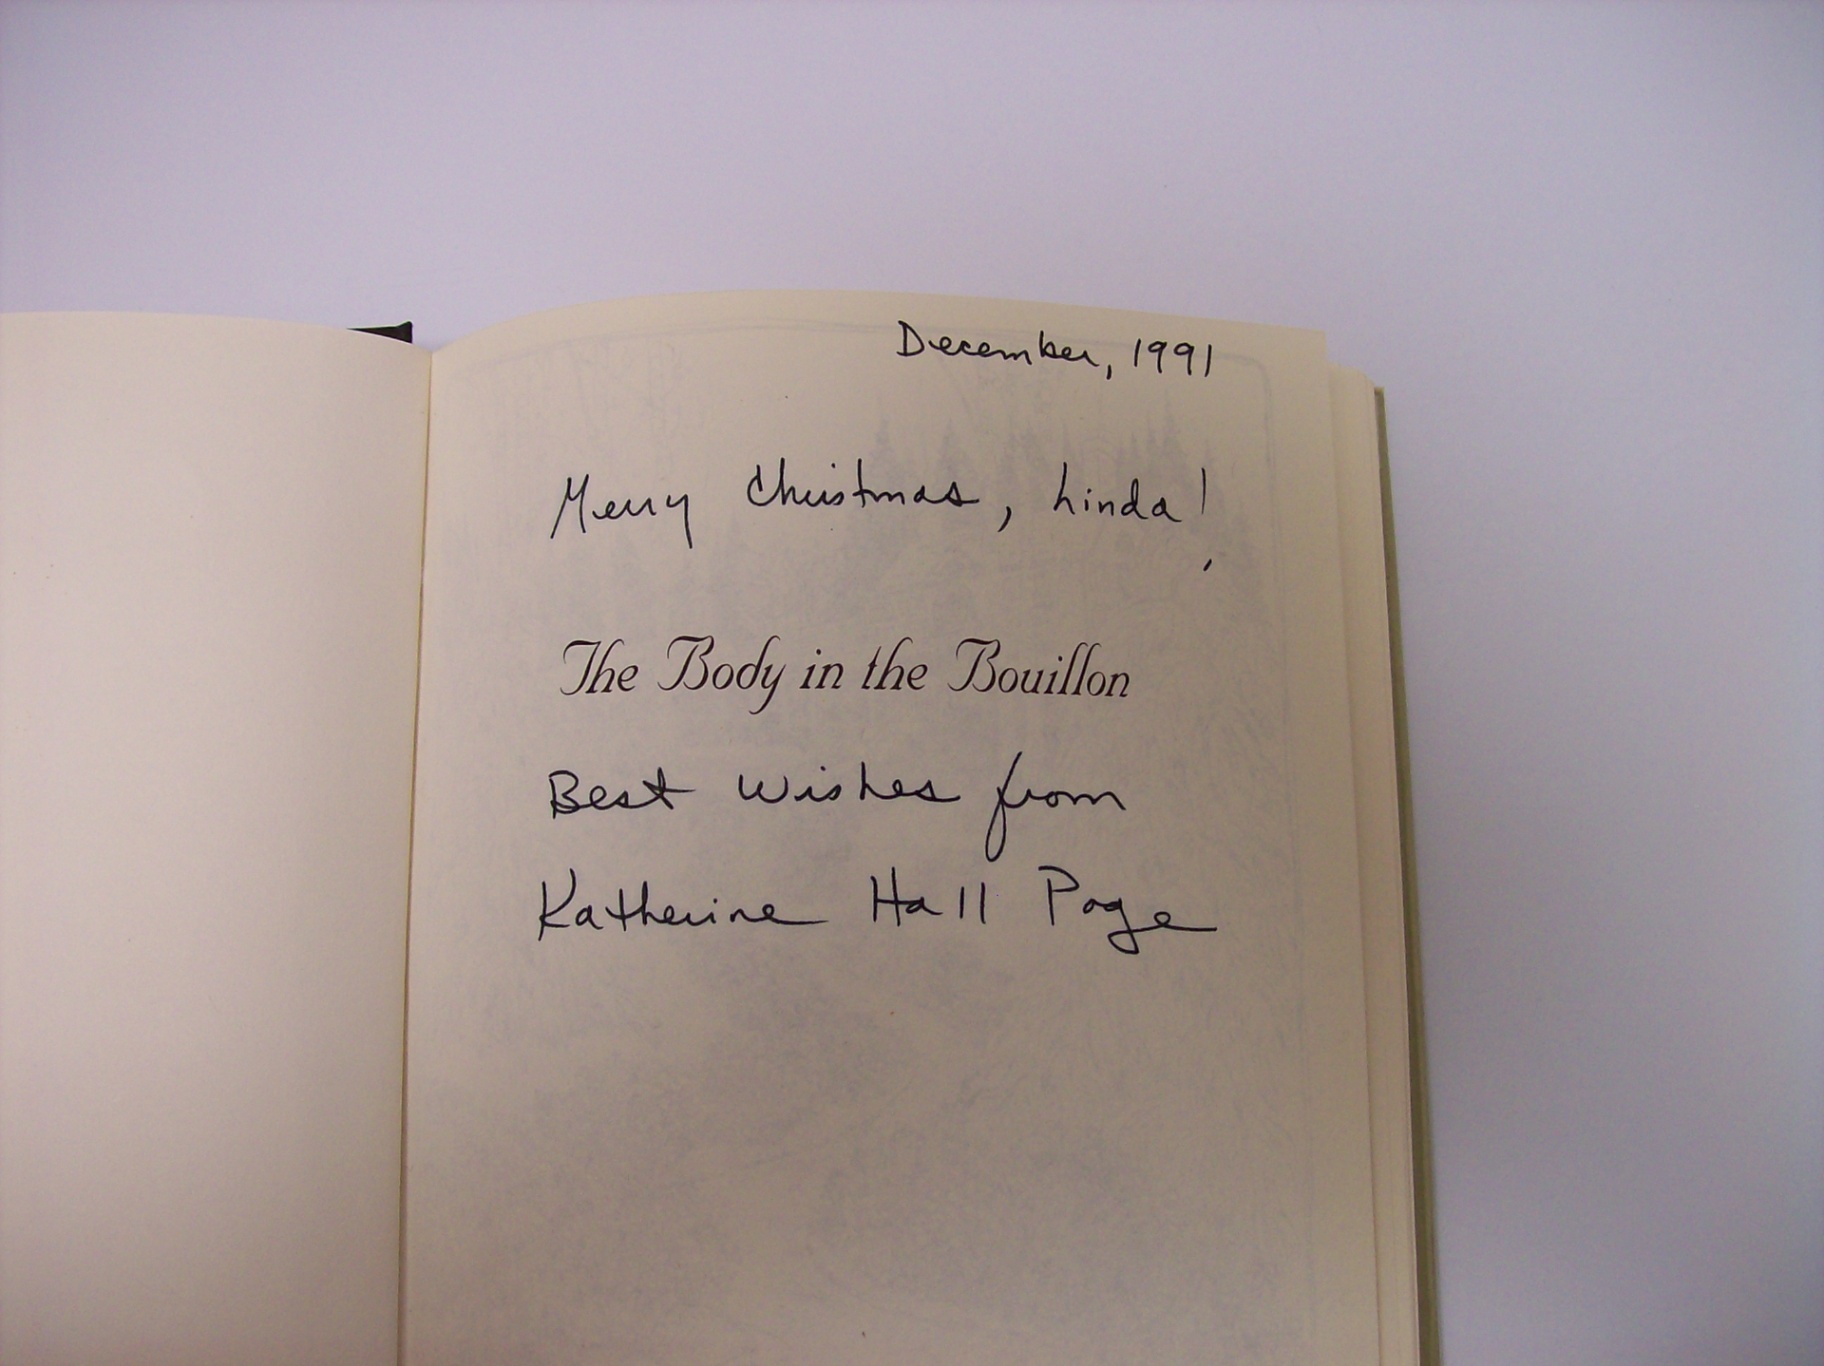 December, 1991
Merry Christmas, Linda!
The Body in the Bouillon
Best Wishes from
Katherine Hall Page